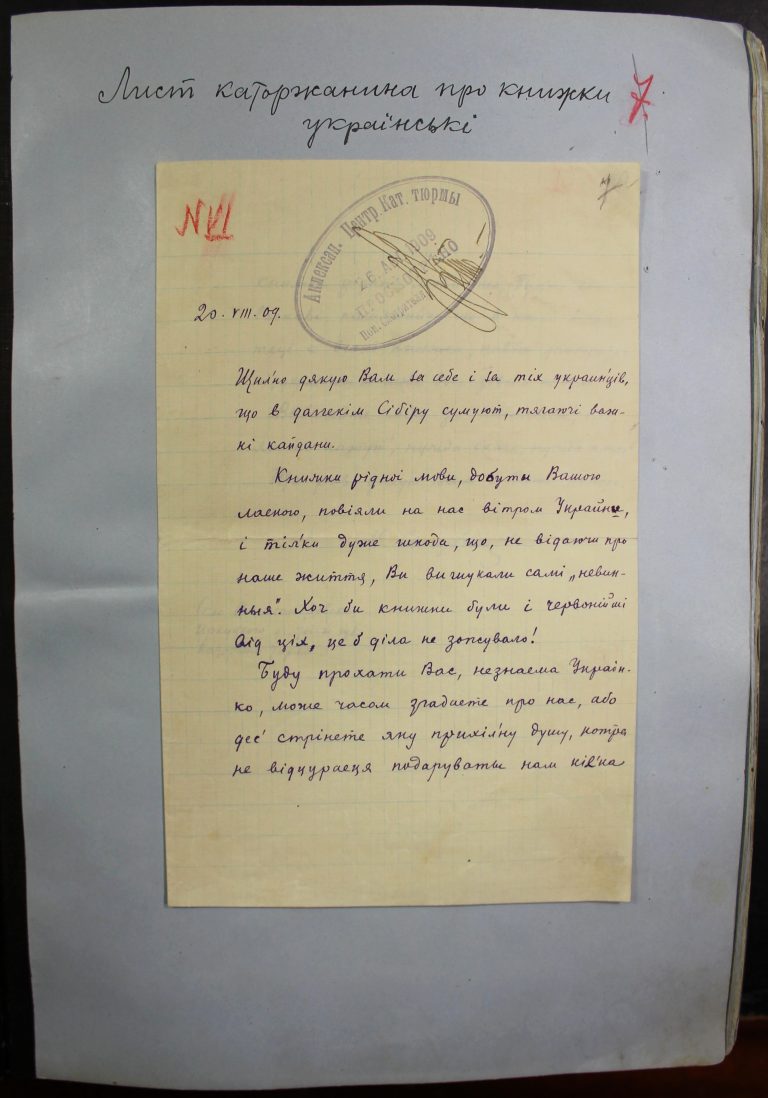 Лист каторжанина про книжки 7.
українські
NVI
7
Алексан. Центр. Кат. тюрмы
26 АВГ 1909
ПРОСМОТРѢНО
20. VIII. 09.
Щил'но дякую Вам за себе і за тіх украйнців,
що в далекім Сібіру сумуют, тягаючі важ-
кі кайдани.
Книжки рідної мови, добуты Вашою
ласкою, повіяли на нас вітром Украйны,
і тіл'ки дуже шкода, що, не відаючи про
наше життя, Ви вишукали самі „невин-
ныя". Хоч би книжки були і червонійші
від ціх, це б діла не зопсувало!
Буду прохати Вас, незнаема Украін-
ко, може часом згадаете про нас, або
дес' стрінете яку прихіл'ну душу, котра
не відцураеця подаруваты нам кіл'ка